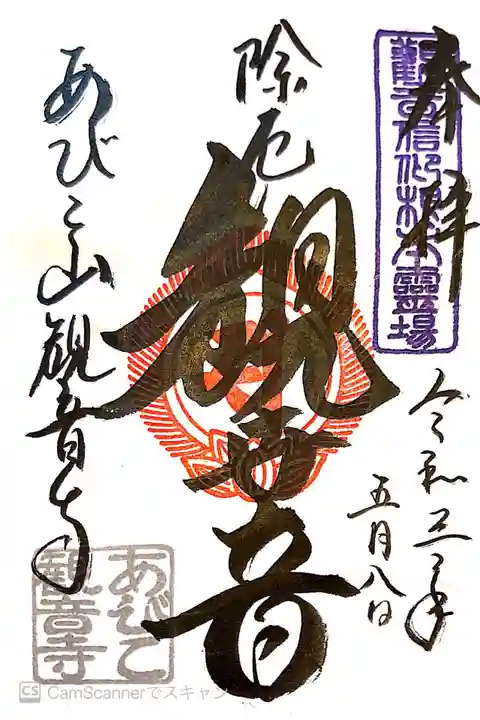 奉拝
觀音信仰根本霊場
令和三年
五月八日
除厄
観世音
あびこ山観音寺
あびこ
観音寺
CS CamScannerでスキャン